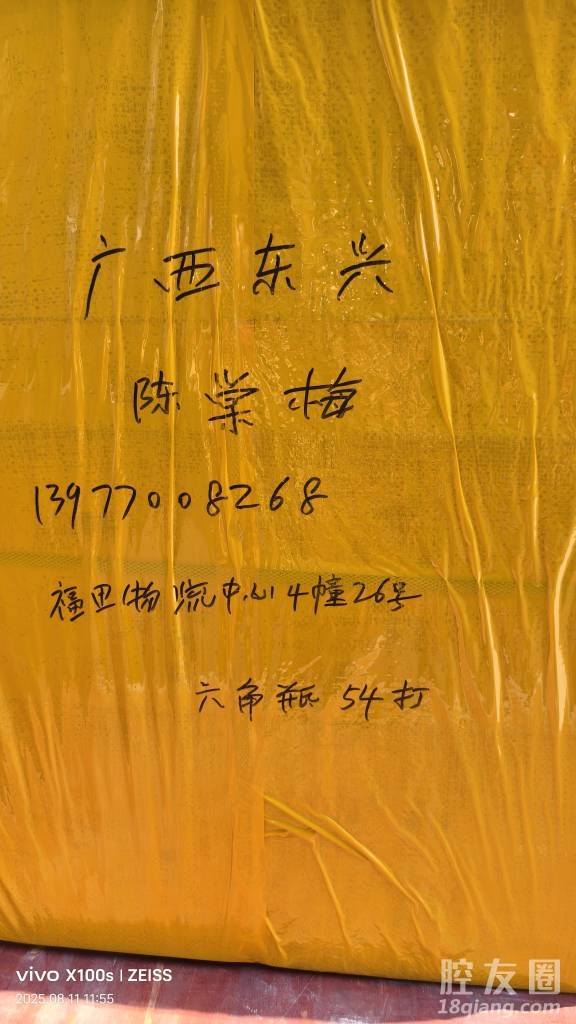 广西东兴
陈棠梅
13977008268
福田物流中心4幢26号
六角瓶 54打
vivo X100s | ZEISS
2025.08.11 11:55
腔友圈
18qiang.com